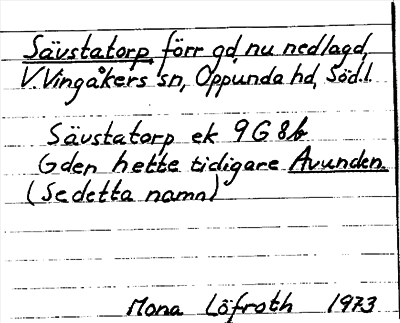 Sävstatorp, förr gd, nu nedlagd,
V. Vingåkers sn, Oppunda hd, Söd.l.
Sävstatorp ek 9G8b
Gden hette tidigare Avunden.
(Se detta namn)
Mona Löfroth 1973